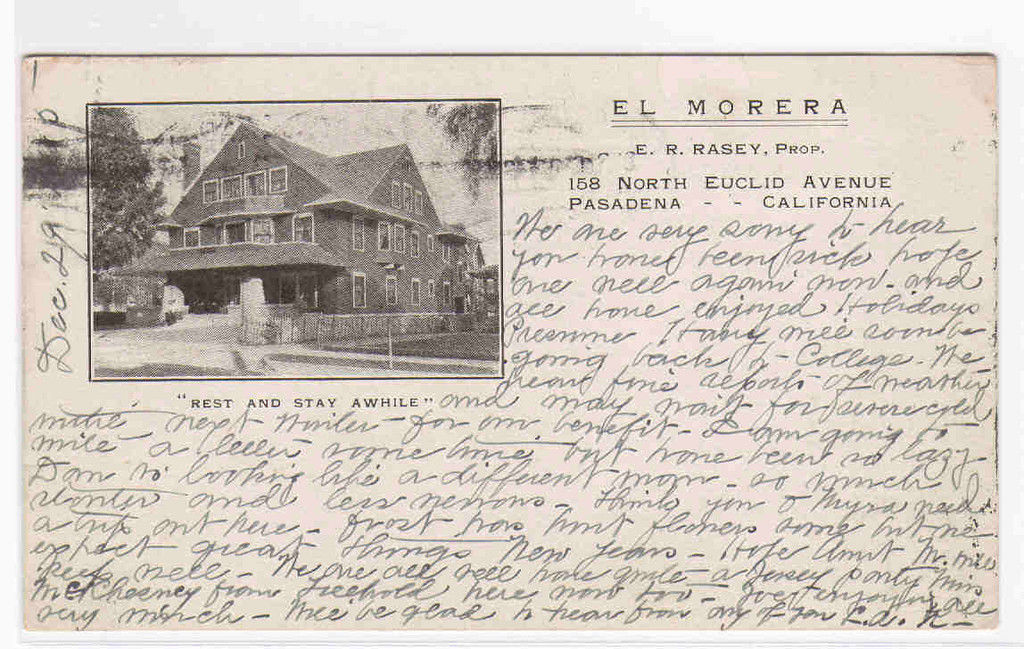 EL MORERA
E. R. RASEY, PROP.
158 NORTH EUCLID AVENUE
PASADENA - - CALIFORNIA
Dec. 29
"REST AND STAY AWHILE"
We are very sorry to hear
you have been sick hope
are well again now - and
all have enjoyed Holidays
Presume Harry will soon be
going back to College. We
hear fine reports of weather
and may wait for severe cold
until next Winter - for our benefit - I am going to
write a letter some time but have been so lazy -
Dan is looking like a different man - so much
stouter and less nervous - Think you & Myra need
a trip out here - Frost has hurt flowers some but we
expect great things New Years - Hope Aunt M. will
keep well - We are all well have quite a Jersey party Miss
McChesney from Freehold here now too - Just enjoying all
very much - Will be glad to hear from any of you L. A.